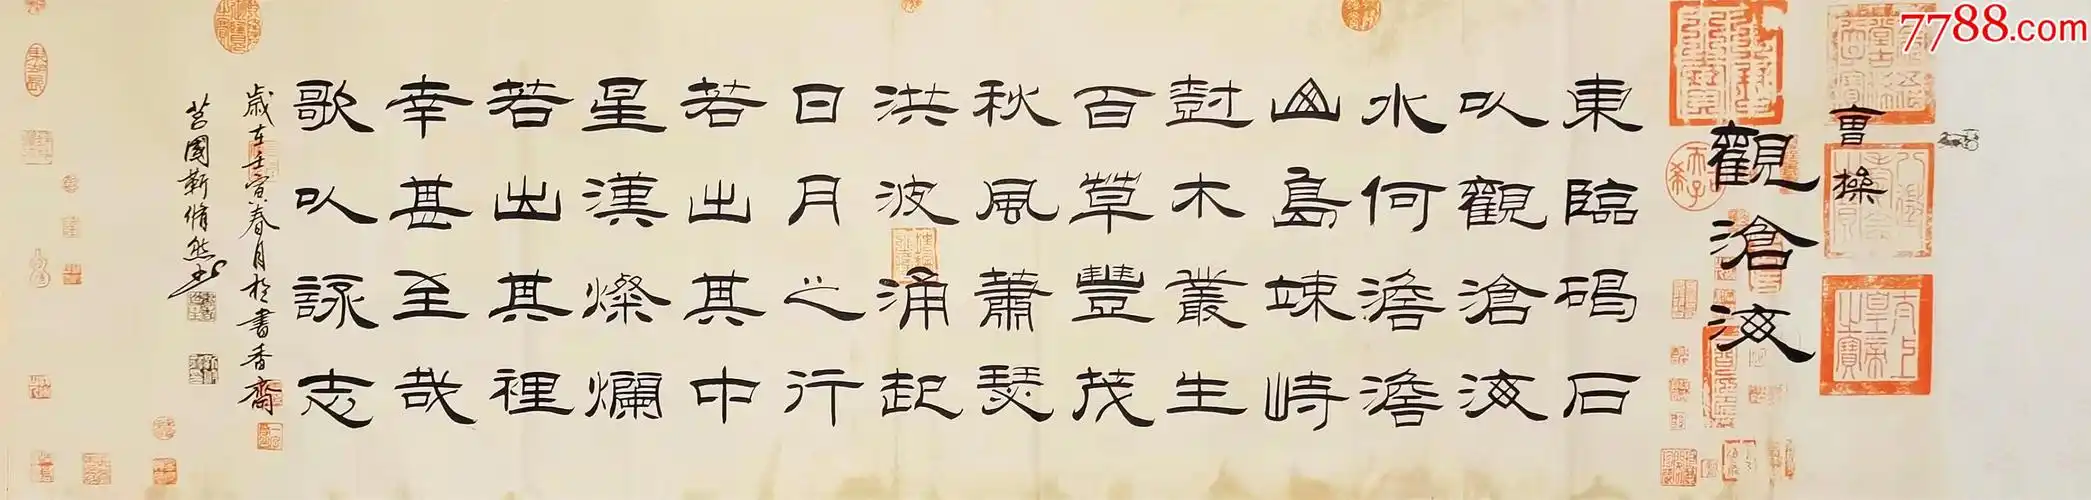 7788.com
曹操
觀滄海
東臨碣石
以觀滄海
水何澹澹
山島竦峙
樹木叢生
百草豐茂
秋風蕭瑟
洪波涌起
日月之行
若出其中
星漢燦爛
若出其裡
幸甚至哉
歌以詠志
歲在壬寅春月於書香齋
莒國靳脩然书
太上皇帝之寶